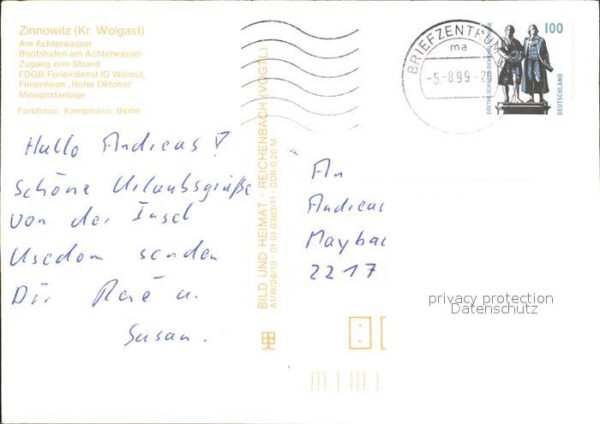 Zinnowitz (Kr. Wolgast)
Am Achterwasser
Bootshafen am Achterwasser
Zugang zum Strand
FDGB-Feriendienst IG Wismut,
Ferienheim „Roter Oktober"
Minisportanlage
Farbfotos: Kampmann, Berlin
Hallo Andreas!
Schöne Urlaubsgrüße
von der Insel
Usedom senden
Dir René u.
Susan.
BILD UND HEIMAT · REICHENBACH (VOGTL)
A1/III/26/13 · 01 01 0383/11 · DDR 0,20 M
BRIEFZENTRUM
ma
-5.-8.99-
100
DEUTSCHLAND
An
Andreas
Maybac
2217
privacy protection
Datenschutz